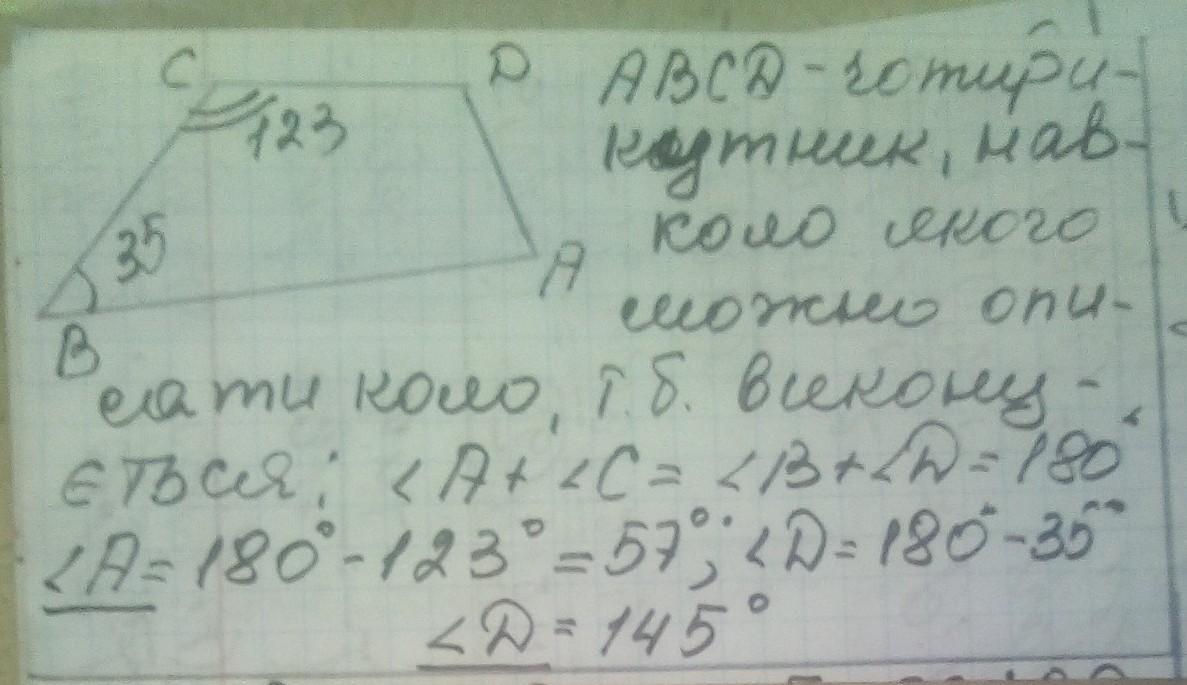 C D
123
35
A
B
ABCD - чотири-
кутник, нав-
коло якого
можно опи-
сати коло, т.б. викону-
ється: <A + <C = <B + <D = 180°
<A = 180° - 123° = 57°; <D = 180° - 35°
<D = 145°